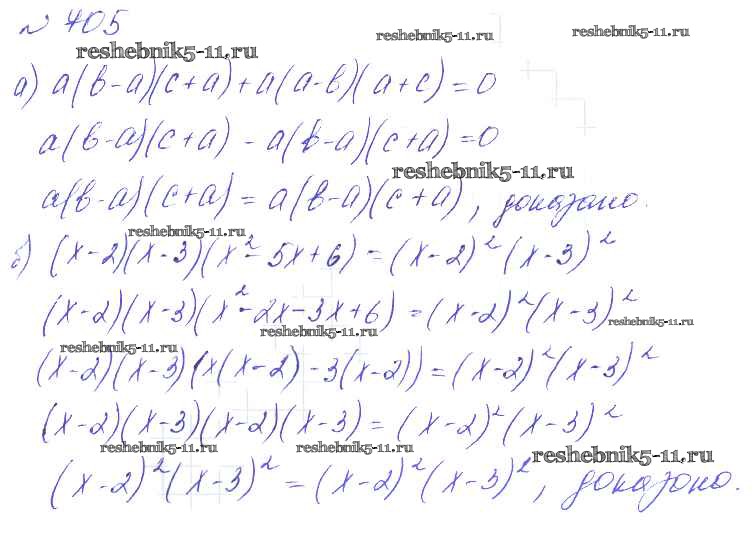 № 705
reshebnik5-11.ru reshebnik5-11.ru reshebnik5-11.ru
а) a(b-a)(c+a)+a(a-b)(a+c)=0
a(b-a)(c+a) - a(b-a)(c+a)=0
reshebnik5-11.ru
a(b-a)(c+a) = a(b-a)(c+a), доказано.
reshebnik5-11.ru
б) (x-2)(x-3)(x²-5x+6)=(x-2)²(x-3)²
(x-2)(x-3)(x²-2x-3x+6)=(x-2)²(x-3)²
reshebnik5-11.ru reshebnik5-11.ru
reshebnik5-11.ru
(x-2)(x-3)(x(x-2)-3(x-2))=(x-2)²(x-3)²
(x-2)(x-3)(x-2)(x-3)=(x-2)²(x-3)²
reshebnik5-11.ru reshebnik5-11.ru reshebnik5-11.ru
(x-2)²(x-3)²=(x-2)²(x-3)², доказано.